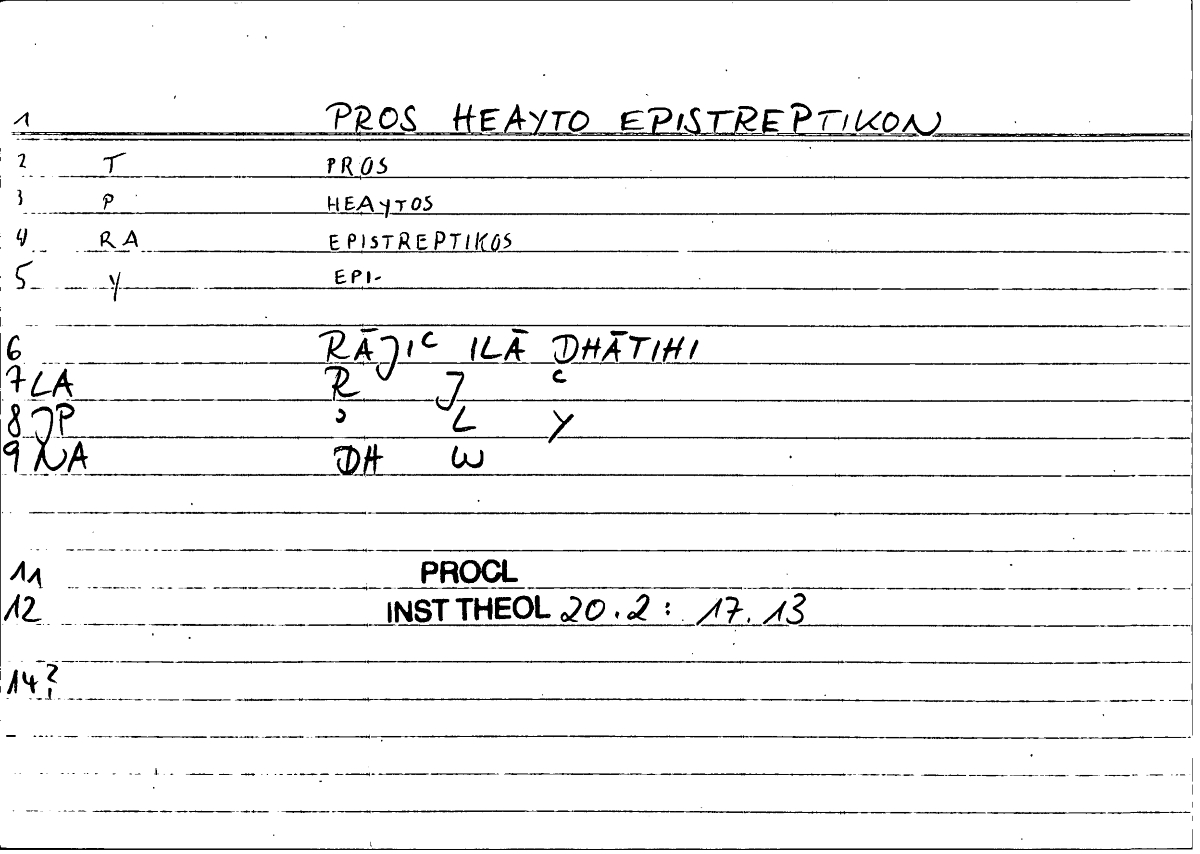 1 PROS HEAYTO EPISTREPTIKON
2 T PROS
3 P HEAYTOS
4 RA EPISTREPTIKOS
5 Y EPI-
6 RĀJIʿ ILĀ DHĀTIHI
7 LA R J ʿ
8 JP ʾ L Y
9 NA DH W
11 PROCL
12 INST THEOL 20.2: 17.13
14?